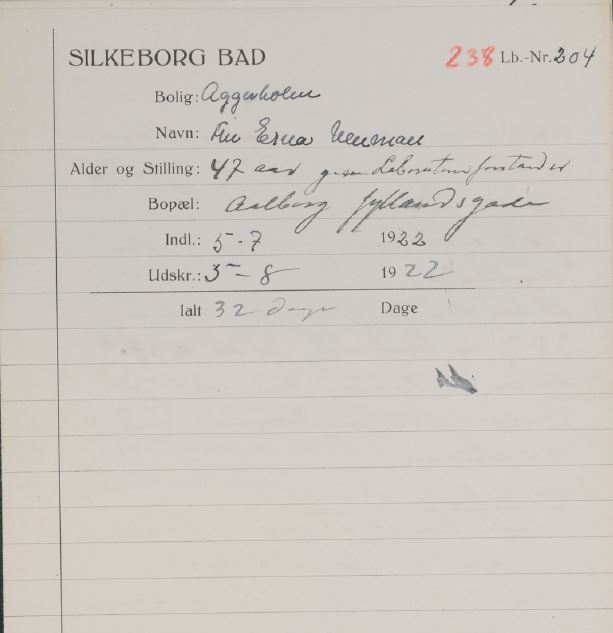 SILKEBORG BAD 238 Lb.-Nr. 204
Bolig: Aggerholm
Navn: Fru Erna Neuman
Alder og Stilling: 47 aar Laboratorieforstander
Bopæl: Aalborg Jyllandsgade
Indl.: 5-7 1922
Udskr.: 5-8 1922
Ialt 32 dage Dage